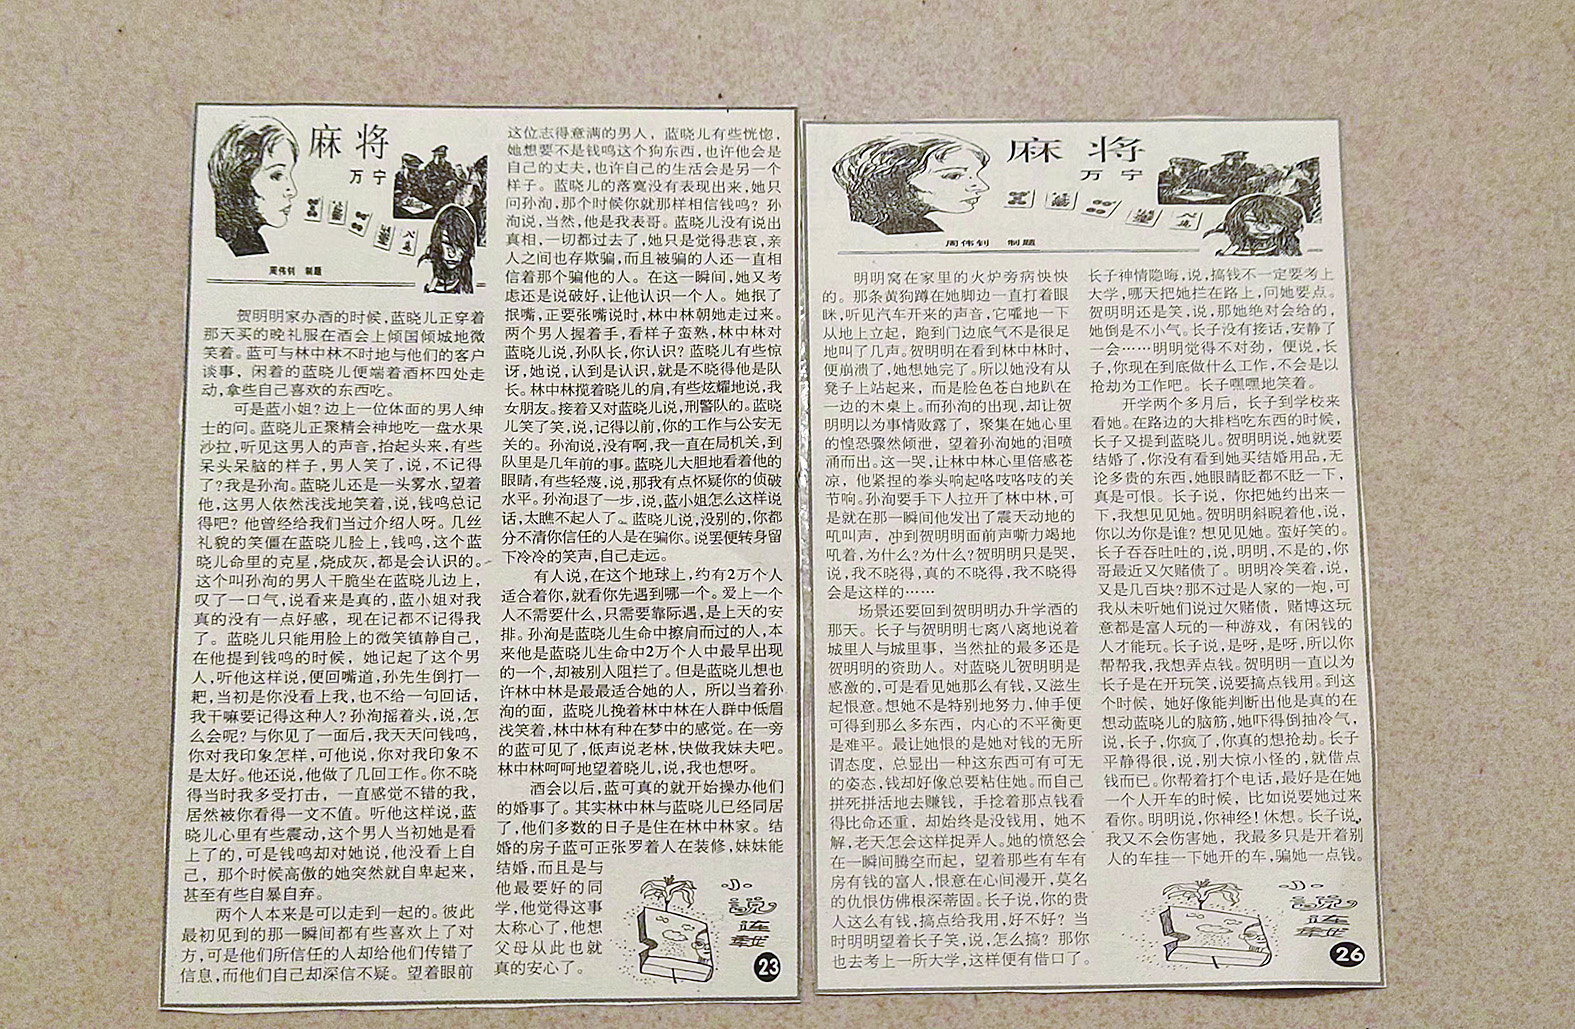 麻将
万宁
周伟钊 制题
贺明明家办酒的时候，蓝晓儿正穿着
那天买的晚礼服在酒会上倾国倾城地微
笑着。蓝可与林中林不时地与他们的客户
谈事，闲着的蓝晓儿便端着酒杯四处走
动，拿些自己喜欢的东西吃。
可是蓝小姐？边上一位体面的男人绅
士的问。蓝晓儿正聚精会神地吃一盘水果
沙拉，听见这男人的声音，抬起头来，有些
呆头呆脑的样子，男人笑了，说，不记得
了？我是孙洵。蓝晓儿还是一头雾水，望着
他，这男人依然浅浅地笑着，说，钱鸣总记
得吧？他曾经给我们当过介绍人呀。几丝
礼貌的笑僵在蓝晓儿脸上，钱鸣，这个蓝
晓儿命里的克星，烧成灰，都是会认识的。
这个叫孙洵的男人干脆坐在蓝晓儿边上，
叹了一口气，说看来是真的，蓝小姐对我
真的没有一点好感，现在记都不记得我
了。蓝晓儿只能用脸上的微笑镇静自己，
在他提到钱鸣的时候，她记起了这个男
人，听他这样说，便回嘴道，孙先生倒打一
耙，当初是你没看上我，也不给一句回话，
我干嘛要记得这种人？孙洵摇着头，说，怎
么会呢？与你见了一面后，我天天问钱鸣，
你对我印象怎样，可他说，你对我印象不
是太好。他还说，他做了几回工作。你不晓
得当时我多受打击，一直感觉不错的我，
居然被你看得一文不值。听他这样说，蓝
晓儿心里有些震动，这个男人当初她是看
上了的，可是钱鸣却对她说，他没看上自
己，那个时候高傲的她突然就自卑起来，
甚至有些自暴自弃。
两个人本来是可以走到一起的。彼此
最初见到的那一瞬间都有些喜欢上了对
方，可是他们所信任的人却给他们传错了
信息，而他们自己却深信不疑。望着眼前
这位志得意满的男人，蓝晓儿有些恍惚，
她想要不是钱鸣这个狗东西，也许他会是
自己的丈夫，也许自己的生活会是另一个
样子。蓝晓儿的落寞没有表现出来，她只
问孙洵，那个时候你就那样相信钱鸣？孙
洵说，当然，他是我表哥。蓝晓儿没有说出
真相，一切都过去了，她只是觉得悲哀，亲
人之间也存欺骗，而且被骗的人还一直相
信着那个骗他的人。在这一瞬间，她又考
虑还是说破好，让他认识一个人。她抿了
抿嘴，正要张嘴说时，林中林朝她走过来。
两个男人握着手，看样子蛮熟，林中林对
蓝晓儿说，孙队长，你认识？蓝晓儿有些惊
讶，她说，认到是认识，就是不晓得他是队
长。林中林揽着晓儿的肩，有些炫耀地说，我
女朋友。接着又对蓝晓儿说，刑警队的。蓝晓
儿笑了笑，说，记得以前，你的工作与公安无
关的。孙洵说，没有啊，我一直在局机关，到
队里是几年前的事。蓝晓儿大胆地看着他的
眼睛，有些轻蔑，说，那我有点怀疑你的侦破
水平。孙洵退了一步，说，蓝小姐怎么这样说
话，太瞧不起人了。蓝晓儿说，没别的，你都
分不清你信任的人是在骗你。说罢便转身留
下冷冷的笑声，自己走远。
有人说，在这个地球上，约有2万个人
适合着你，就看你先遇到哪一个。爱上一个
人不需要什么，只需要靠际遇，是上天的安
排。孙洵是蓝晓儿生命中擦肩而过的人，本
来他是蓝晓儿生命中2万个人中最早出现
的一个，却被别人阻拦了。但是蓝晓儿想也
许林中林是最最适合她的人，所以当着孙
洵的面，蓝晓儿挽着林中林在人群中低眉
浅笑着，林中林有种在梦中的感觉。在一旁
的蓝可见了，低声说老林，快做我妹夫吧。
林中林呵呵地望着晓儿，说，我也想呀。
酒会以后，蓝可真的就开始操办他们
的婚事了。其实林中林与蓝晓儿已经同居
了，他们多数的日子是住在林中林家。结
婚的房子蓝可正张罗着人在装修，妹妹能
结婚，而且是与
他最要好的同
学，他觉得这事
太称心了，他想
父母从此也就
真的安心了。
小说连载
23
麻将
万宁
周伟钊 制题
明明窝在家里的火炉旁病怏怏
的。那条黄狗蹲在她脚边一直打着眼
眯，听见汽车开来的声音，它嚯地一下
从地上立起，跑到门边底气不是很足
地叫了几声。贺明明在看到林中林时，
便崩溃了，她想她完了。所以她没有从
凳子上站起来，而是脸色苍白地趴在
一边的木桌上。而孙洵的出现，却让贺
明明以为事情败露了，聚集在她心里
的惶恐骤然倾泄，望着孙洵她的泪喷
涌而出。这一哭，让林中林心里倍感苍
凉，他紧捏的拳头响起咯吱咯吱的关
节响。孙洵要手下人拉开了林中林，可
是就在那一瞬间他发出了震天动地的
吼叫声，冲到贺明明面前声嘶力竭地
吼着，为什么？为什么？贺明明只是哭，
说，我不晓得，真的不晓得，我不晓得
会是这样的……
场景还要回到贺明明办升学酒的
那天。长子与贺明明七离八离地说着
城里人与城里事，当然扯的最多还是
贺明明的资助人。对蓝晓儿贺明明是
感激的，可是看见她那么有钱，又滋生
起恨意。想她不是特别地努力，伸手便
可得到那么多东西，内心的不平衡更
是难平。最让她恨的是她对钱的无所
谓态度，总显出一种这东西可有可无
的姿态，钱却好像总要粘住她。而自己
拼死拼活地去赚钱，手捻着那点钱看
得比命还重，却始终是没钱用，她不
解，老天怎么会这样捉弄人。她的愤怒会
在一瞬间腾空而起，望着那些有车有
房有钱的富人，恨意在心间漫开，莫名
的仇恨仿佛根深蒂固。长子说，你的贵
人这么有钱，搞点给我用，好不好？当
时明明望着长子笑，说，怎么搞？那你
也去考上一所大学，这样便有借口了。
长子神情隐晦，说，搞钱不一定要考上
大学，哪天把她拦在路上，问她要点。
贺明明还是笑，说，那她绝对会给的，
她倒是不小气。长子没有接话，安静了
一会……明明觉得不对劲，便说，长
子，你现在到底做什么工作，不会是以
抢劫为工作吧。长子嘿嘿地笑着。
开学两个多月后，长子到学校来
看她。在路边的大排档吃东西的时候，
长子又提到蓝晓儿。贺明明说，她就要
结婚了，你没有看到她买结婚用品，无
论多贵的东西，她眼睛眨都不眨一下，
真是可恨。长子说，你把她约出来一
下，我想见见她。贺明明斜睨着他，说，
你以为你是谁？想见见她。蛮好笑的。
长子吞吞吐吐的，说，明明，不是的，你
哥最近又欠赌债了。明明冷笑着，说，
又是几百块？那不过是人家的一炮，可
我从未听她们说过欠赌债，赌博这玩
意都是富人玩的一种游戏，有闲钱的
人才能玩。长子说，是呀，是呀，所以你
帮帮我，我想弄点钱。贺明明一直以为
长子是在开玩笑，说要搞点钱用。到这
个时候，她好像能判断出他是真的在
想动蓝晓儿的脑筋，她吓得倒抽冷气，
说，长子，你疯了，你真的想抢劫。长子
平静得很，说，别大惊小怪的，就借点
钱而已。你帮着打个电话，最好是在她
一个人开车的时候，比如说要她过来
看你。明明说，你神经！休想。长子说，
我又不会伤害她，我最多只是开着别
人的车挂一下她开的车，骗她一点钱。
小说连载
26